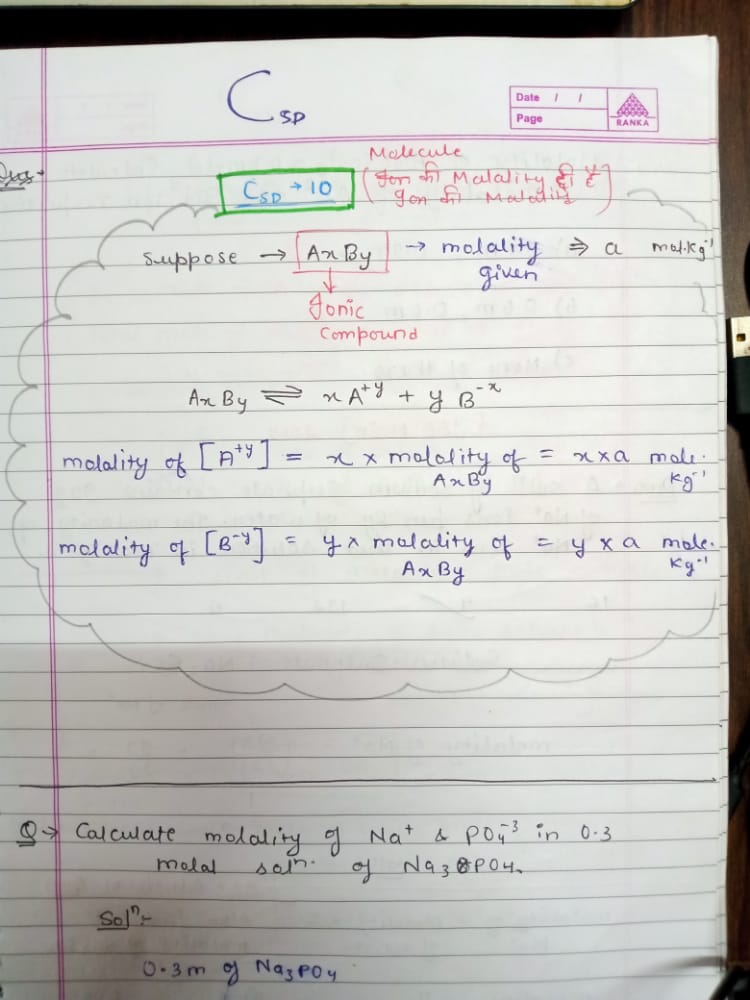 C SD
Date / /
Page
RANKA
Molecule
CSD → 10 (Ion की Molality दी है
Ion की Molality)
Suppose → AxBy → molality ⇒ a mol.kg⁻¹
given
Ionic
Compound
AxBy ⇌ xA⁺ʸ + yB⁻ˣ
molality of [A⁺ʸ] = x × molality of = x × a mole.
AxBy kg⁻¹
molality of [B⁻ʸ] = y × molality of = y × a mole.
AxBy kg⁻¹
Q → Calculate molality of Na⁺ & PO₄⁻³ in 0.3
molal solⁿ. of Na₃PO₄.
Solⁿ:-
0.3m of Na₃PO₄